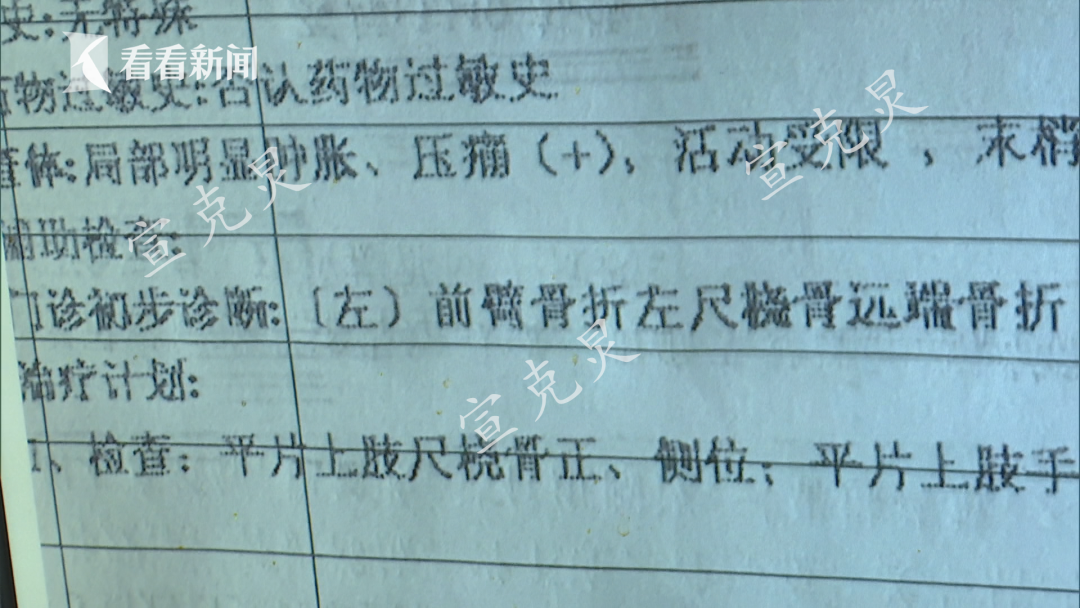 史:无特殊
看看新闻
药物过敏史:否认药物过敏史
查体:局部明显肿胀、压痛(+),活动受限,末梢
辅助检查:
门诊初步诊断:(左)前臂骨折左尺桡骨远端骨折
治疗计划:
1、检查:平片上肢尺桡骨正、侧位;平片上肢手
宣克灵
宣克灵
宣克灵